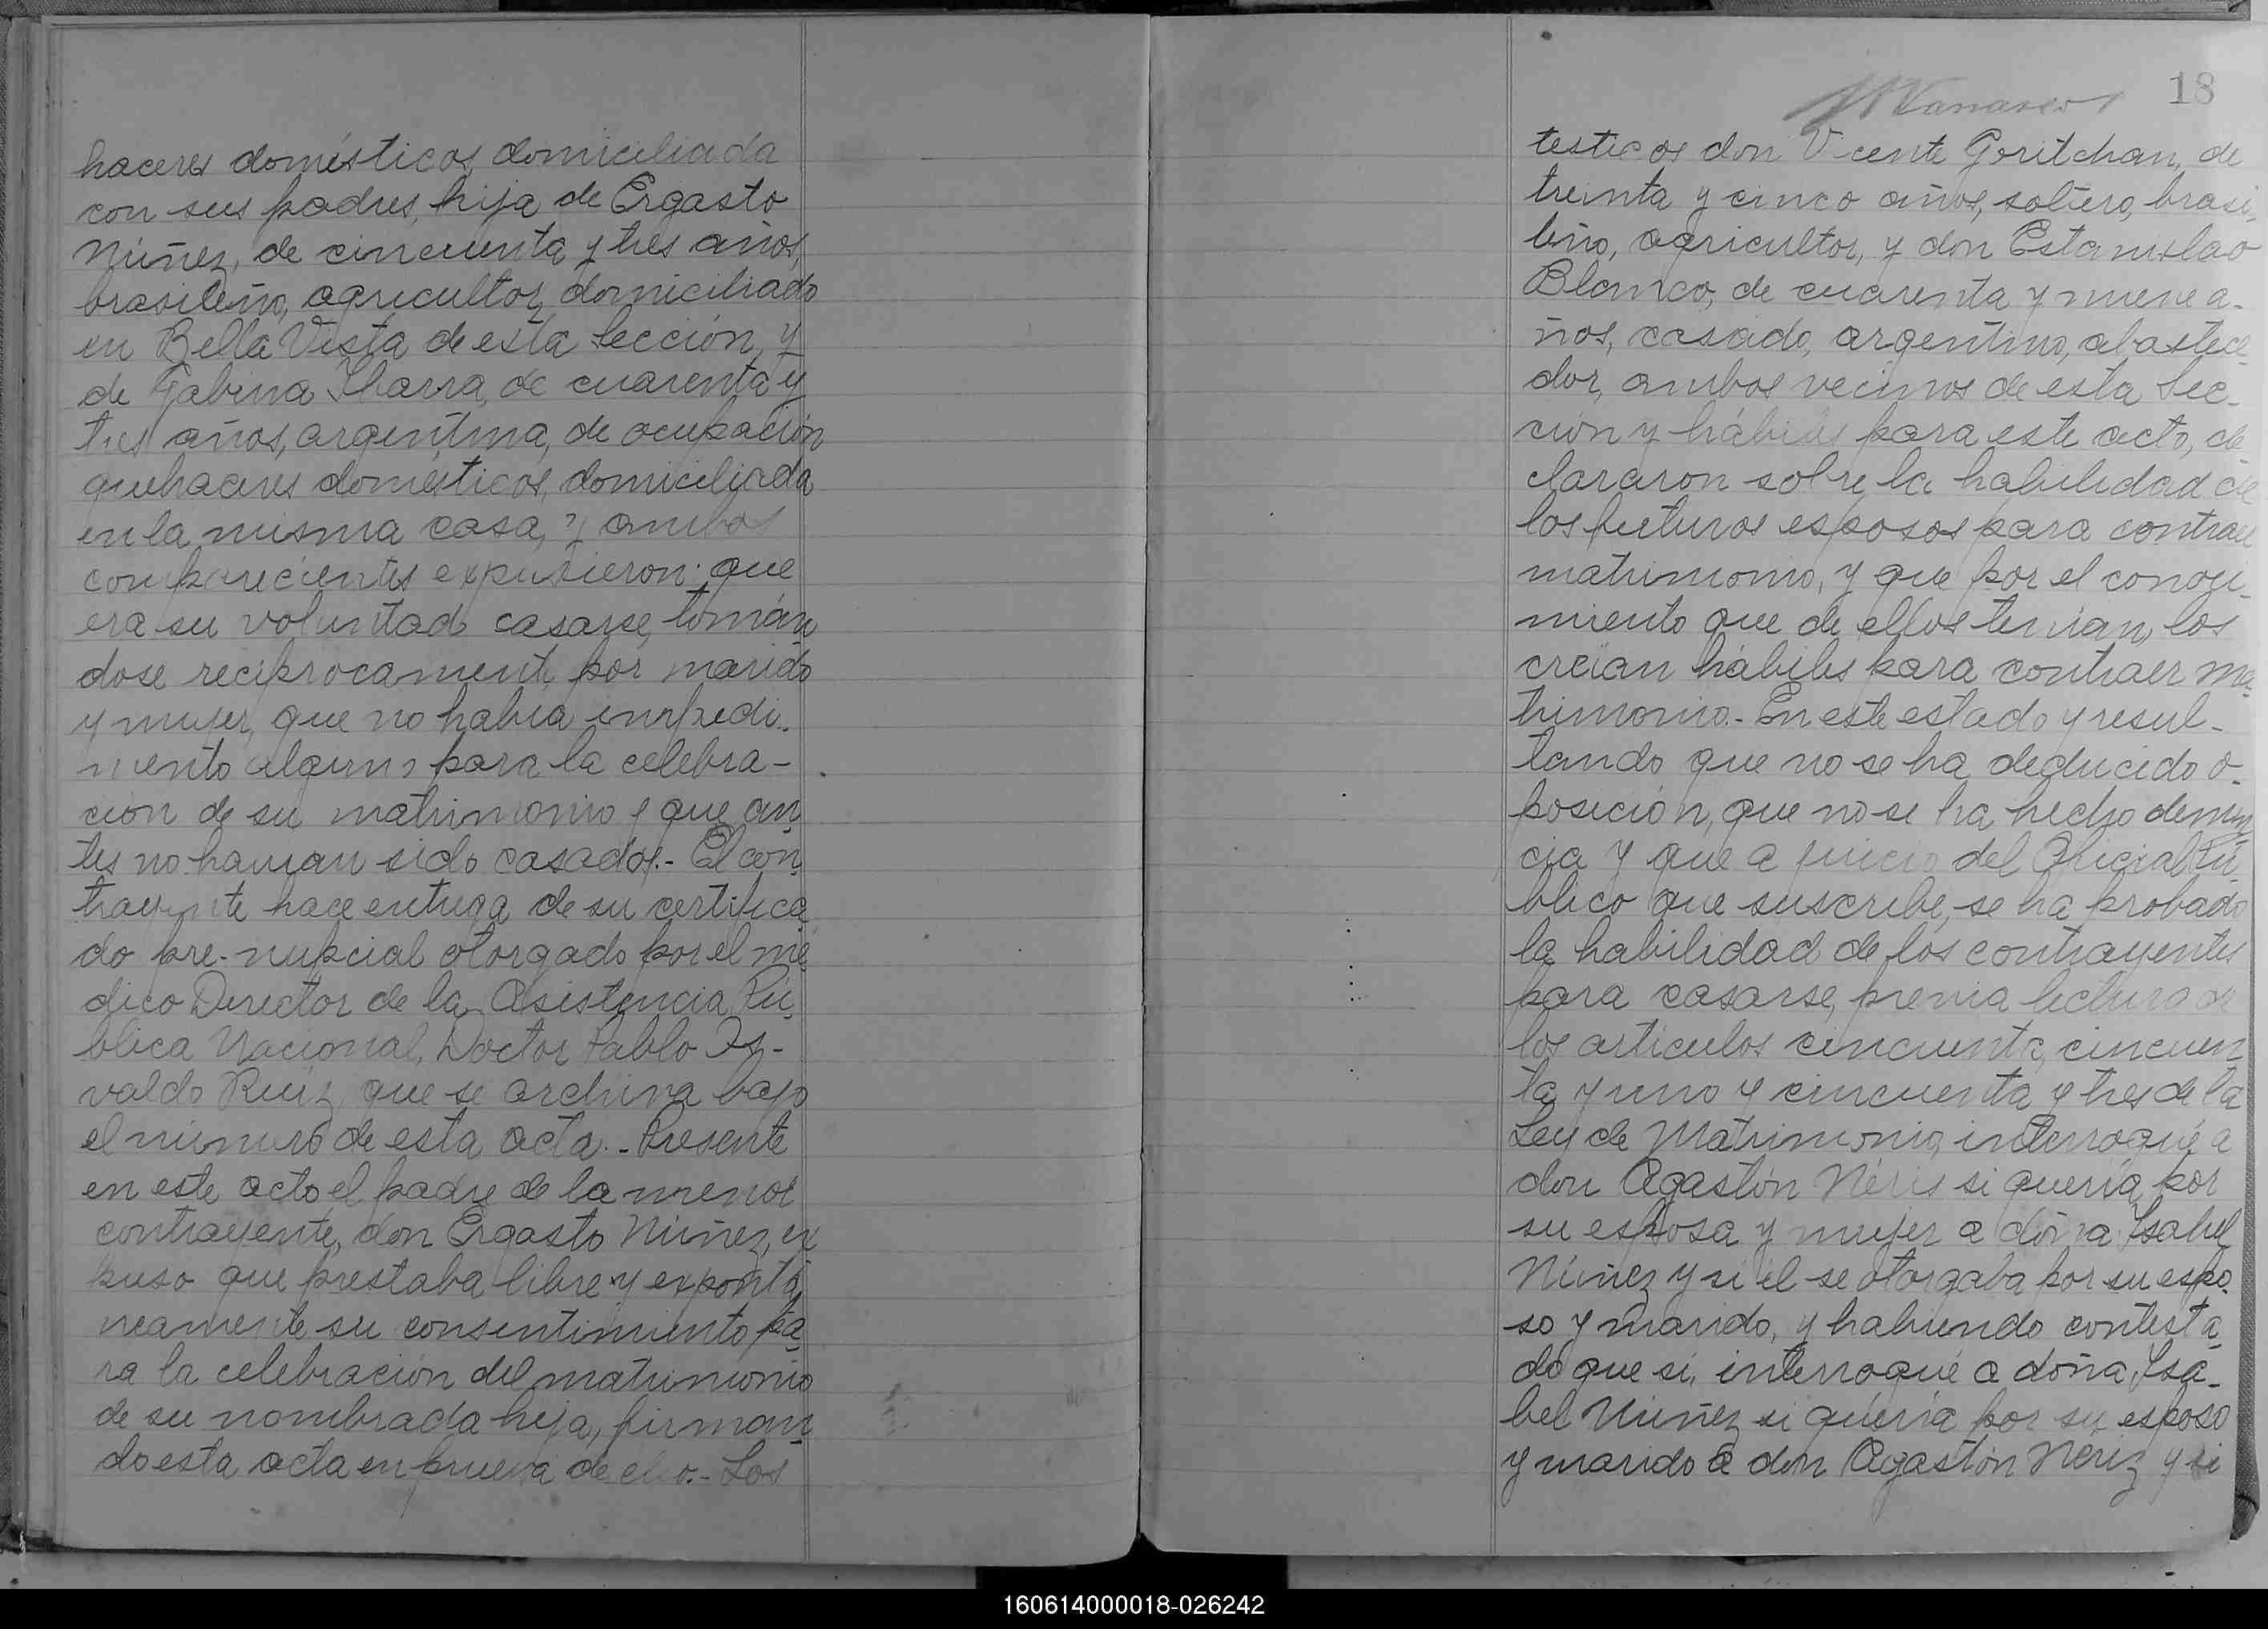 haceres domésticos, domiciliada
con sus padres, hija de Ergasto
Núñez, de cincuenta y tres años,
brasileño, agricultor, domiciliado
en Bella Vista de esta Sección, y
de Gabina Ibarra, de cuarenta y
tres años, argentina, de ocupación
quehaceres domésticos, domiciliada
en la misma casa, y ambos
comparecientes expusieron: que
era su voluntad casarse, tomán
dose reciprocamente por marido
y mujer, que no habia impedi-
mento alguno para la celebra-
ción de su matrimonio y que an
tes no havian sido casados.- El con
trayente hace entrega de su certifica
do pre-nupcial otorgado por el mé
dico Director de la Asistencia Pú
blica Nacional, Doctor Pablo Os-
valdo Ruiz, que se archiva bajo
el número de esta acta.- Presente
en este acto el padre de la menor
contrayente, don Ergasto Núñez, ex
puso que prestaba libre y expontá
neamente su consentimiento pa
ra la celebración del matrimonio
de su nombrada hija, firman
do esta acta en prueva de ello.- Los
18
testigos don Vicente Goritchan, de
treinta y cinco años, soltero, brasi
leño, agricultor, y don Estanislao
Blanco, de cuarenta y nueve a-
ños, casado, argentino, abastece
dor, ambos vecinos de esta Sec-
ción y hábiles para este acto, de
clararon sobre la habilidad de
los futuros esposos para contraer
matrimonio, y que por el conoci-
miento que de ellos tenian, los
creian hábiles para contraer ma
trimonio.- En este estado y resul-
tando que no se ha deducido o-
posición, que no se ha hecho denun
cia y que a juicio del Oficial Pú
blico que suscribe, se ha probado
la habilidad de los contrayentes
para casarse, previa lectura de
los articulos cincuenta, cincuen
ta y uno y cincuenta y tres de la
Ley de Matrimonio, interrogué a
don Agastón Néris si queria por
su esposa y mujer a doña Isabel
Núñez y si él se otorgaba por su espo
so y marido, y habiendo contesta
do que si, interrogué a doña Isa-
bel Núñez si queria por su esposo
y marido a don Agastón Neriz y si
160614000018-026242